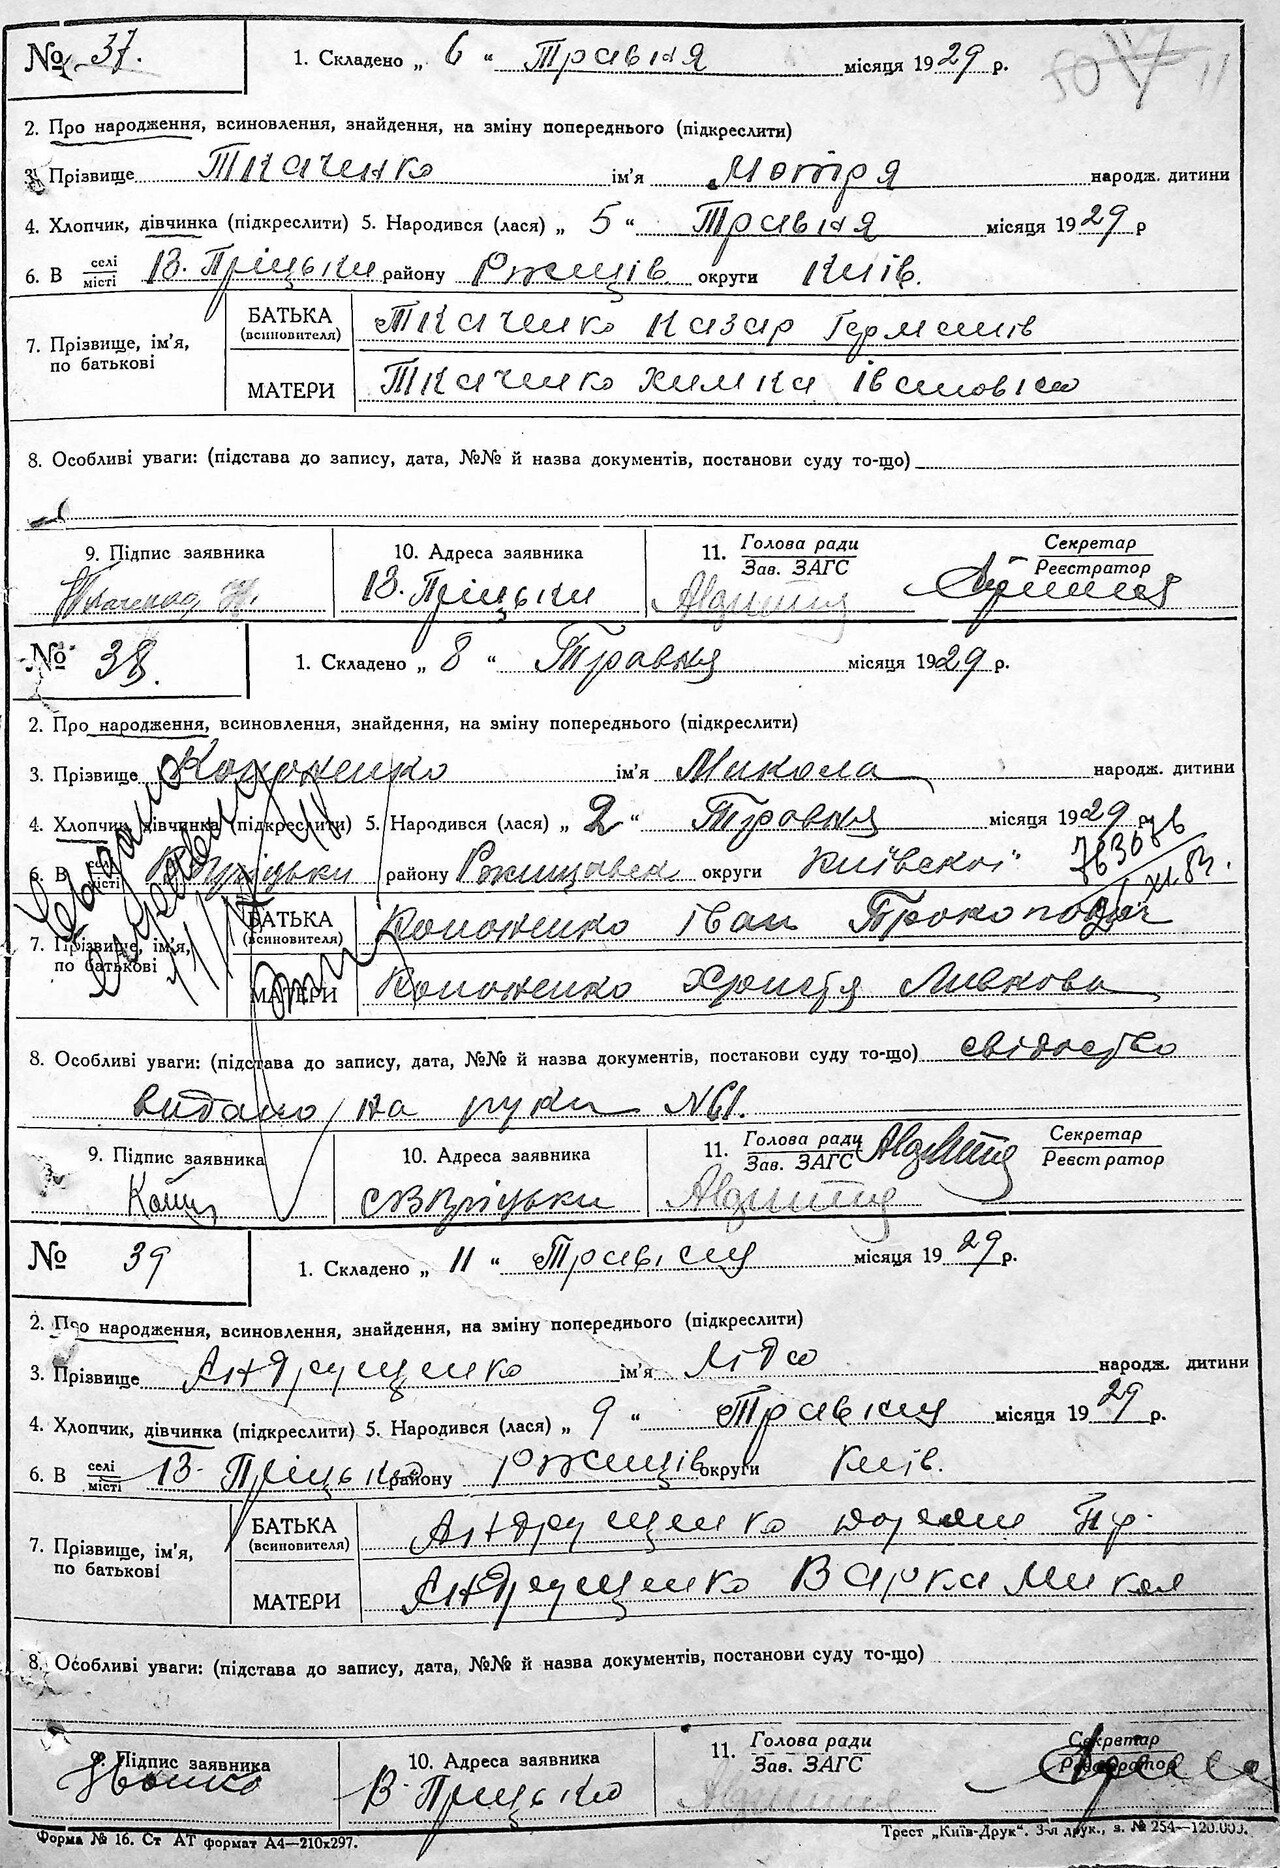 № 37.
1. Складено „ 6 “ Травня місяця 1929 р.
2. Про народження, всиновлення, знайдення, на зміну попереднього (підкреслити)
3. Прізвище Ткаченко ім'я Мотря народж. дитини
4. Хлопчик, дівчинка (підкреслити) 5. Народився (лася) „ 5 “ Травня місяця 1929 р
6. В селі місті В. Пріцьки району Ржищів. округи Київ.
7. Прізвище, ім'я, по батькові
БАТЬКА (всиновителя) Ткаченко Назар
МАТЕРИ Ткаченко Химка Івановна
8. Особливі уваги: (підстава до запису, дата, №№ й назва документів, постанови суду то-що)
9. Підпис заявника 10. Адреса заявника 11. Голова ради Зав. ЗАГС Секретар Реєстратор
В. Пріцьки
№ 38.
1. Складено „ 8 “ Травня місяця 1929 р.
2. Про народження, всиновлення, знайдення, на зміну попереднього (підкреслити)
3. Прізвище Кононенко ім'я Микола народж. дитини
4. Хлопчик, дівчинка (підкреслити) 5. Народився (лася) „ 2 “ Травня місяця 1929 р.
6. В селі місті В Пріцьки району округи Київської
7. Прізвище, ім'я, по батькові
БАТЬКА (всиновителя) Кононенко Іван Прокопович
МАТЕРИ Кононенко Христя
8. Особливі уваги: (підстава до запису, дата, №№ й назва документів, постанови суду то-що) свідоцтво
видано на руки №61.
9. Підпис заявника 10. Адреса заявника 11. Голова ради Зав. ЗАГС Секретар Реєстратор
с В Пріцьки
№ 39
1. Складено „ 11 “ Травня місяця 1929 р.
2. Про народження, всиновлення, знайдення, на зміну попереднього (підкреслити)
3. Прізвище Андрущенко ім'я Ліда народж. дитини
4. Хлопчик, дівчинка (підкреслити) 5. Народився (лася) „ 9 “ Травня місяця 1929 р.
6. В селі місті В. Пріцька району Ржищів округи Київ.
7. Прізвище, ім'я, по батькові
БАТЬКА (всиновителя) Андрущенко
МАТЕРИ Андрущенко Варка Микол
8. Особливі уваги: (підстава до запису, дата, №№ й назва документів, постанови суду то-що)
9. Підпис заявника 10. Адреса заявника 11. Голова ради Зав. ЗАГС Секретар Реєстратор
В Пріцька
Форма № 16. Ст АТ формат А4—210x297.
Трест „Київ-Друк“. 3-я друк., з. № 254—120.000.